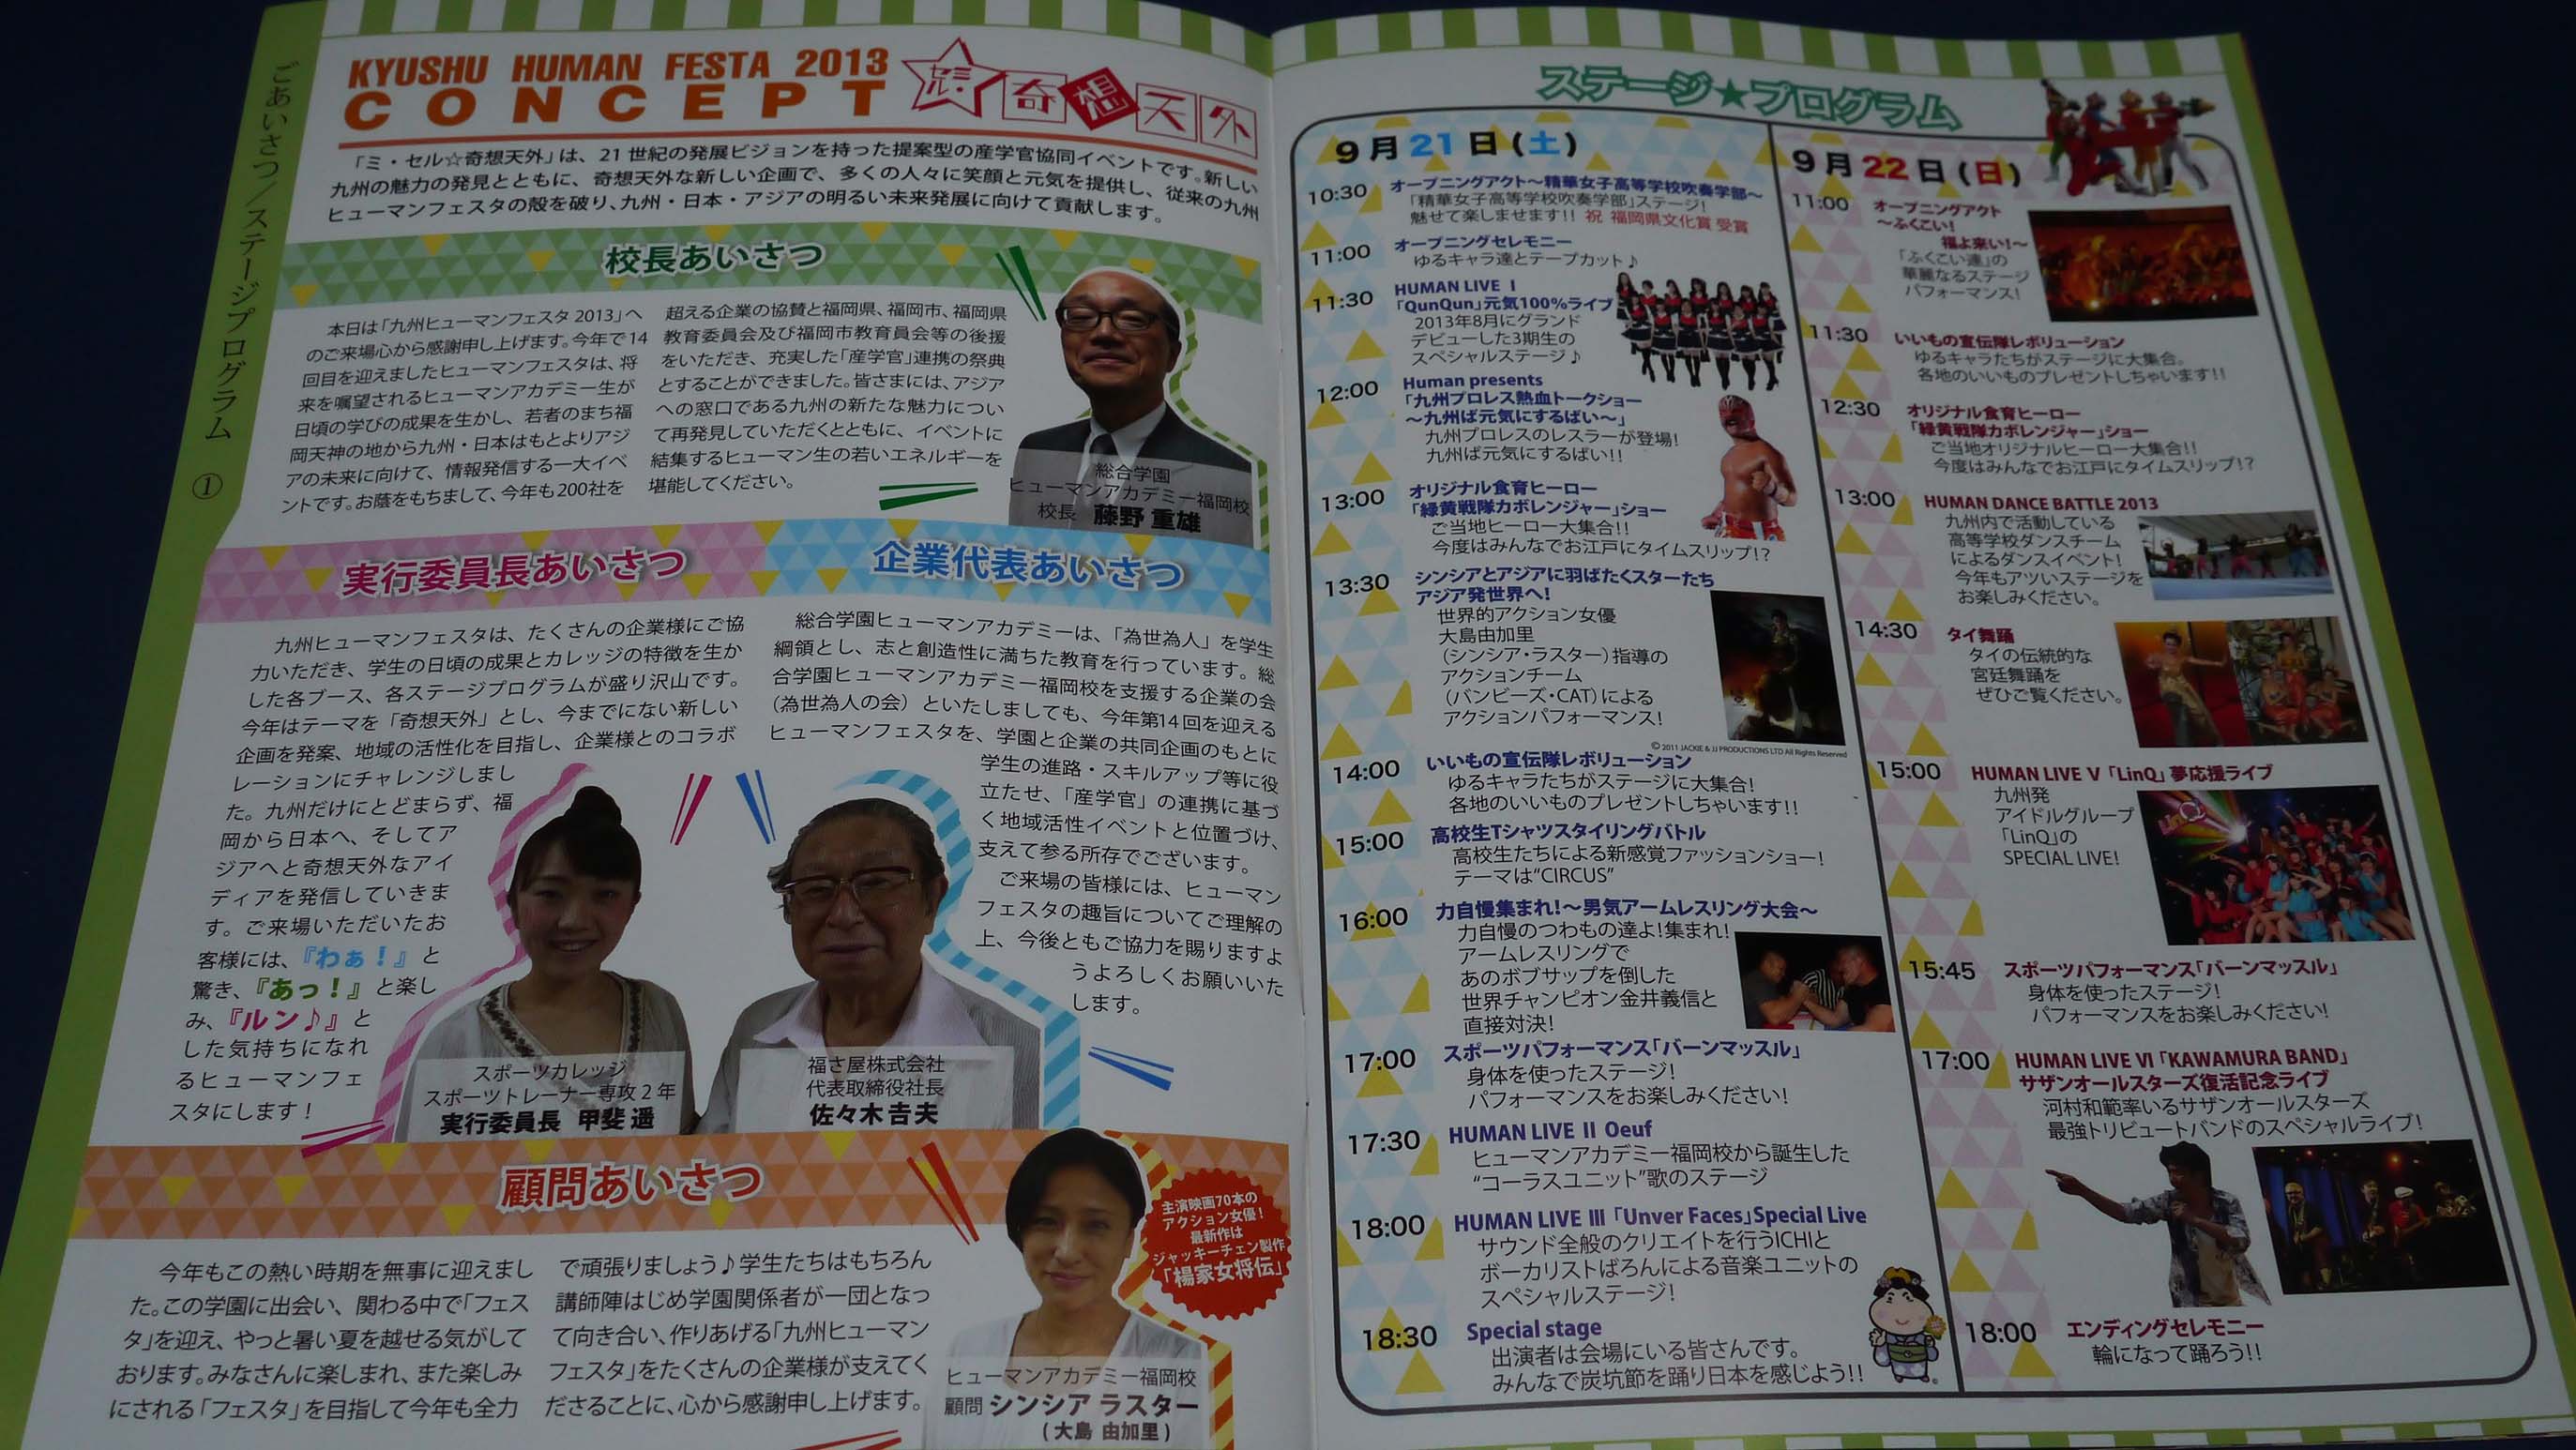 ごあいさつ／ステージプログラム ①
KYUSHU HUMAN FESTA 2013
CONCEPT
奇想天外
「ミ・セル☆奇想天外」は、21世紀の発展ビジョンを持った提案型の産学官協同イベントです。新しい
九州の魅力の発見とともに、奇想天外な新しい企画で、多くの人々に笑顔と元気を提供し、従来の九州
ヒューマンフェスタの殻を破り、九州・日本・アジアの明るい未来発展に向けて貢献します。
校長あいさつ
本日は「九州ヒューマンフェスタ2013」へ
のご来場心から感謝申し上げます。今年で14
回目を迎えましたヒューマンフェスタは、将
来を嘱望されるヒューマンアカデミー生が
日頃の学びの成果を生かし、若者のまち福
岡天神の地から九州・日本はもとよりアジ
アの未来に向けて、情報発信する一大イベ
ントです。お蔭をもちまして、今年も200社を
超える企業の協賛と福岡県、福岡市、福岡県
教育委員会及び福岡市教育員会等の後援
をいただき、充実した「産学官」連携の祭典
とすることができました。皆さまには、アジア
への窓口である九州の新たな魅力につい
て再発見していただくとともに、イベントに
結集するヒューマン生の若いエネルギーを
堪能してください。
総合学園
ヒューマンアカデミー福岡校
校長 藤野 重雄
実行委員長あいさつ
九州ヒューマンフェスタは、たくさんの企業様にご協
力いただき、学生の日頃の成果とカレッジの特徴を生か
した各ブース、各ステージプログラムが盛り沢山です。
今年はテーマを「奇想天外」とし、今までにない新しい
企画を発案、地域の活性化を目指し、企業様とのコラボ
レーションにチャレンジしまし
た。九州だけにとどまらず、福
岡から日本へ、そしてア
ジアへと奇想天外なアイ
ディアを発信していきま
す。ご来場いただいたお
客様には、『わぁ！』と
驚き、『あっ！』と楽し
み、『ルン♪』と
した気持ちになれ
るヒューマンフェ
スタにします！
スポーツカレッジ
スポーツトレーナー専攻2年
実行委員長 甲斐 遥
企業代表あいさつ
総合学園ヒューマンアカデミーは、「為世為人」を学生
綱領とし、志と創造性に満ちた教育を行っています。総
合学園ヒューマンアカデミー福岡校を支援する企業の会
（為世為人の会）といたしましても、今年第14回を迎える
ヒューマンフェスタを、学園と企業の共同企画のもとに
学生の進路・スキルアップ等に役
立たせ、「産学官」の連携に基づ
く地域活性イベントと位置づけ、
支えて参る所存でございます。
ご来場の皆様には、ヒューマン
フェスタの趣旨についてご理解の
上、今後ともご協力を賜りますよ
うよろしくお願いいた
します。
福さ屋株式会社
代表取締役社長
佐々木 吉夫
顧問あいさつ
今年もこの熱い時期を無事に迎えまし
た。この学園に出会い、関わる中で「フェス
タ」を迎え、やっと暑い夏を越せる気がして
おります。みなさんに楽しまれ、また楽しみ
にされる「フェスタ」を目指して今年も全力
で頑張りましょう♪学生たちはもちろん
講師陣はじめ学園関係者が一団となっ
て向き合い、作りあげる「九州ヒューマン
フェスタ」をたくさんの企業様が支えてく
ださることに、心から感謝申し上げます。
主演映画70本の
アクション女優！
最新作は
ジャッキーチェン製作
「楊家女将伝」
ヒューマンアカデミー福岡校
顧問 シンシア ラスター
（大島 由加里）
ステージ★プログラム
9月21日（土）
10:30 オープニングアクト～精華女子高等学校吹奏学部～
「精華女子高等学校吹奏学部」ステージ！
魅せて楽しませます!! 祝 福岡県文化賞 受賞
11:00 オープニングセレモニー
ゆるキャラ達とテープカット♪
11:30 HUMAN LIVE Ⅰ
「QunQun」元気100%ライブ
2013年8月にグランド
デビューした3期生の
スペシャルステージ♪
12:00 Human presents
「九州プロレス熱血トークショー
～九州ば元気にするばい～」
九州プロレスのレスラーが登場！
九州ば元気にするばい!!
13:00 オリジナル食育ヒーロー
「緑黄戦隊カボレンジャー」ショー
ご当地ヒーロー大集合!!
今度はみんなでお江戸にタイムスリップ!?
13:30 シンシアとアジアに羽ばたくスターたち
アジア発世界へ！
世界的アクション女優
大島由加里
（シンシア・ラスター）指導の
アクションチーム
（バンビーズ・CAT）による
アクションパフォーマンス！
©2011 JACKIE & JJ PRODUCTIONS LTD All Rights Reserved
14:00 いいもの宣伝隊レボリューション
ゆるキャラたちがステージに大集合！
各地のいいものプレゼントしちゃいます!!
15:00 高校生Tシャツスタイリングバトル
高校生たちによる新感覚ファッションショー！
テーマは“CIRCUS”
16:00 力自慢集まれ！～男気アームレスリング大会～
力自慢のつわもの達よ！集まれ！
アームレスリングで
あのボブサップを倒した
世界チャンピオン金井義信と
直接対決！
17:00 スポーツパフォーマンス「バーンマッスル」
身体を使ったステージ！
パフォーマンスをお楽しみください！
17:30 HUMAN LIVE Ⅱ Oeuf
ヒューマンアカデミー福岡校から誕生した
“コーラスユニット”歌のステージ
18:00 HUMAN LIVE Ⅲ「Unver Faces」Special Live
サウンド全般のクリエイトを行うICHIと
ボーカリストばろんによる音楽ユニットの
スペシャルステージ！
18:30 Special stage
出演者は会場にいる皆さんです。
みんなで炭坑節を踊り日本を感じよう!!
9月22日（日）
11:00 オープニングアクト
～ふくこい！
福よ来い！～
「ふくこい連」の
華麗なるステージ
パフォーマンス！
11:30 いいもの宣伝隊レボリューション
ゆるキャラたちがステージに大集合。
各地のいいものプレゼントしちゃいます!!
12:30 オリジナル食育ヒーロー
「緑黄戦隊カボレンジャー」ショー
ご当地オリジナルヒーロー大集合!!
今度はみんなでお江戸にタイムスリップ!?
13:00 HUMAN DANCE BATTLE 2013
九州内で活動している
高等学校ダンスチーム
によるダンスイベント！
今年もアツいステージを
お楽しみください。
14:30 タイ舞踊
タイの伝統的な
宮廷舞踊を
ぜひご覧ください。
15:00 HUMAN LIVE Ⅴ「LinQ」夢応援ライブ
九州発
アイドルグループ
「LinQ」の
SPECIAL LIVE!
LinQ
15:45 スポーツパフォーマンス「バーンマッスル」
身体を使ったステージ！
パフォーマンスをお楽しみください！
17:00 HUMAN LIVE Ⅵ「KAWAMURA BAND」
サザンオールスターズ復活記念ライブ
河村和範率いるサザンオールスターズ
最強トリビュートバンドのスペシャルライブ！
18:00 エンディングセレモニー
輪になって踊ろう!!